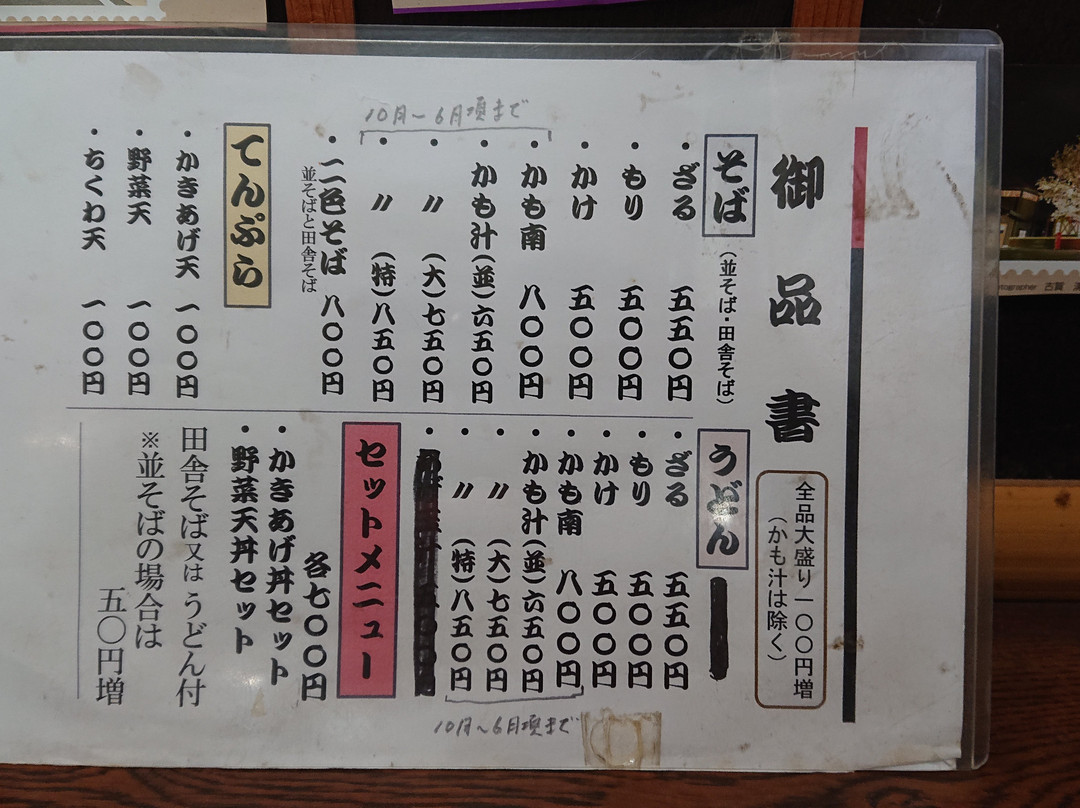 御品書
全品大盛り一〇〇円増
（かも汁は除く）
そば
（並そば・田舎そば）
・ざる 五五〇円
・もり 五〇〇円
・かけ 五〇〇円
10月～6月頃まで
・かも南 八〇〇円
・かも汁（並）六五〇円
・〃（大）七五〇円
・〃（特）八五〇円
・二色そば 八〇〇円
並そばと田舎そば
てんぷら
・かきあげ天 一〇〇円
・野菜天 一〇〇円
・ちくわ天 一〇〇円
うどん
・ざる 五五〇円
・もり 五〇〇円
・かけ 五〇〇円
・かも南 八〇〇円
・かも汁（並）六五〇円
・〃（大）七五〇円
・〃（特）八五〇円
10月～6月頃まで
セットメニュー
各七〇〇円
・かきあげ丼セット
・野菜天丼セット
田舎そば又はうどん付
※並そばの場合は
五〇円増